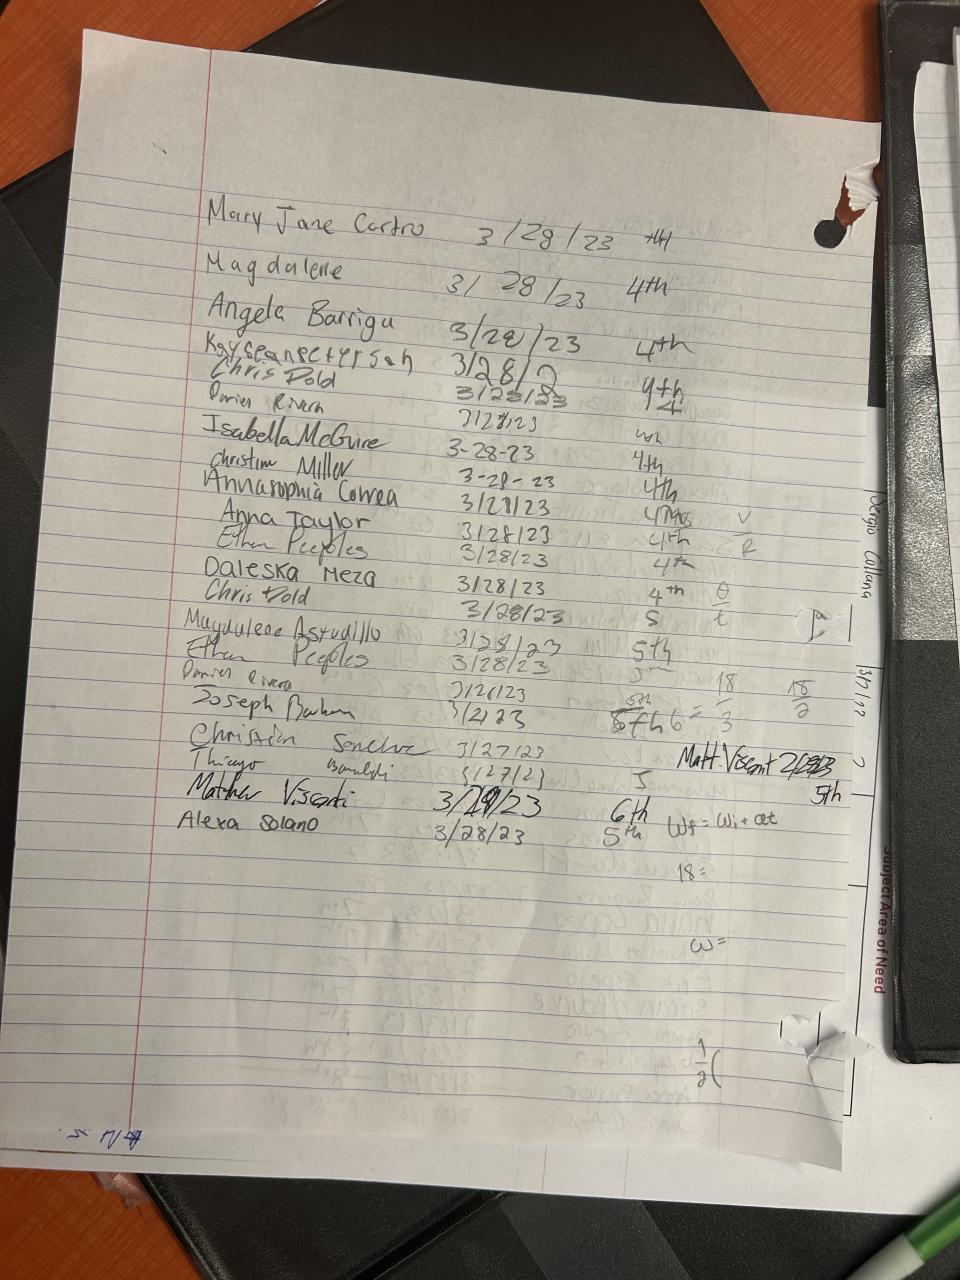 Mary Jane Castro 3/28/23 4th
Magdalene 3/28/23 4th
Angela Barriga 3/28/23 4th
3/28/2 4th
Chris Dold 3/23/23 4
Daniel Rivera 3/28/23 4th
Isabella McGuire 3-28-23 4th
Christina Miller 3-28-23 4th
Annasophia Correa 3/28/23
Anna Taylor 3/28/23 4th
Ethan Peeples 3/28/23 4th
Daleska Meza 3/28/23 4th
Chris Dold 3/28/23 5
Magdalene Astudillo 3/28/23 5th
Ethan Peeples 3/28/23
Daniel Rivera
Joseph 6
Christian 3/27/23
Thiago 3/27/23 5
Matthew Visconti 23 6th
Alexa Solano 3/28/23 5th
V
R
θ
t
18
3
=
18
2
Matt. 5th
ωf = ωi + αt
18=
ω=
1
2
(
Sergio
Subject Area of Need